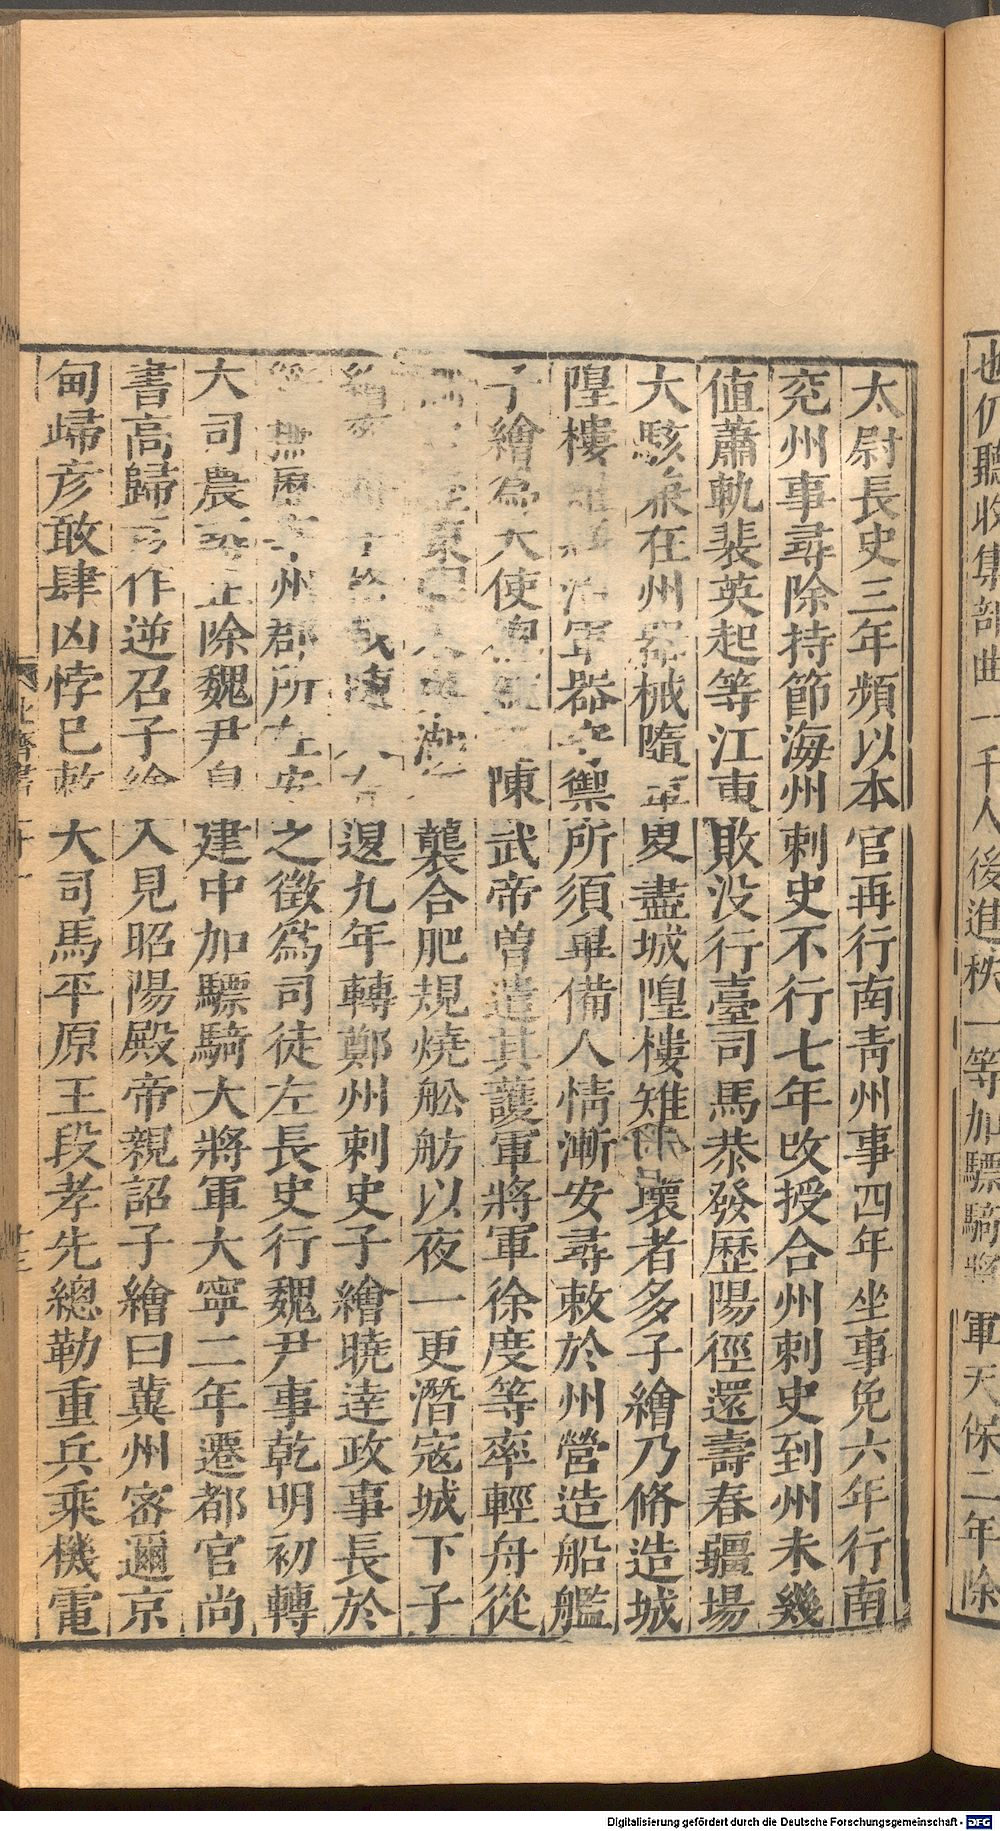 也仍聽收集部曲一千人後進秩一等加驃騎將軍天保二年除
太尉長史三年頻以本官再行南青州事四年坐事免六年行南
兖州事尋除持節海州刺史不行七年改授合州刺史到州未幾
值蕭軌裴英起等江東敗没行臺司馬恭發歷陽徑還壽春疆場
大駭在州器械隨軍畧盡城隍樓雉壞者多子繪乃脩造城
隍樓雉治軍器守禦所須畢備人情漸安尋敕於州營造船艦
子繪為大使陳武帝曾遣其護軍將軍徐度等率輕舟從
東湖襲合肥規燒舩舫以夜一更潛寇城下子
繪退九年轉鄭州刺史子繪曉達政事長於
歷州郡所在安之徵爲司徒左長史行魏尹事乾明初轉
大司農正除魏尹皇建中加驃騎大將軍大寧二年遷都官尚
書高歸彦作逆召子繪入見昭陽殿帝親詔子繪曰冀州密邇京
甸歸彦敢肆凶悖已敕大司馬平原王段孝先總勒重兵乘機電
北齊書
Digitalisierung gefördert durch die Deutsche Forschungsgemeinschaft - DFG